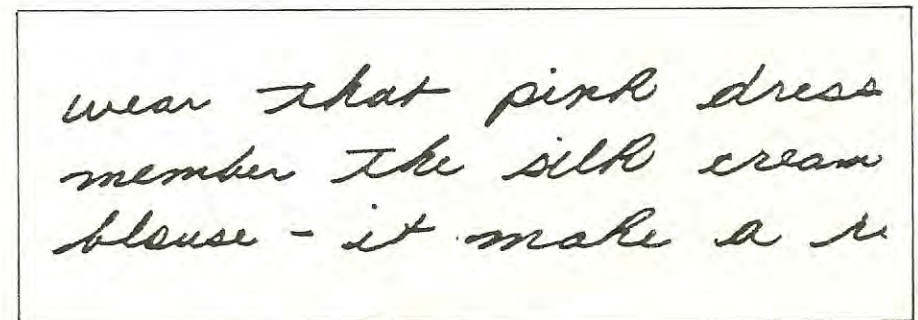 wear that pink dress
member the silk cream
blouse - it make a r